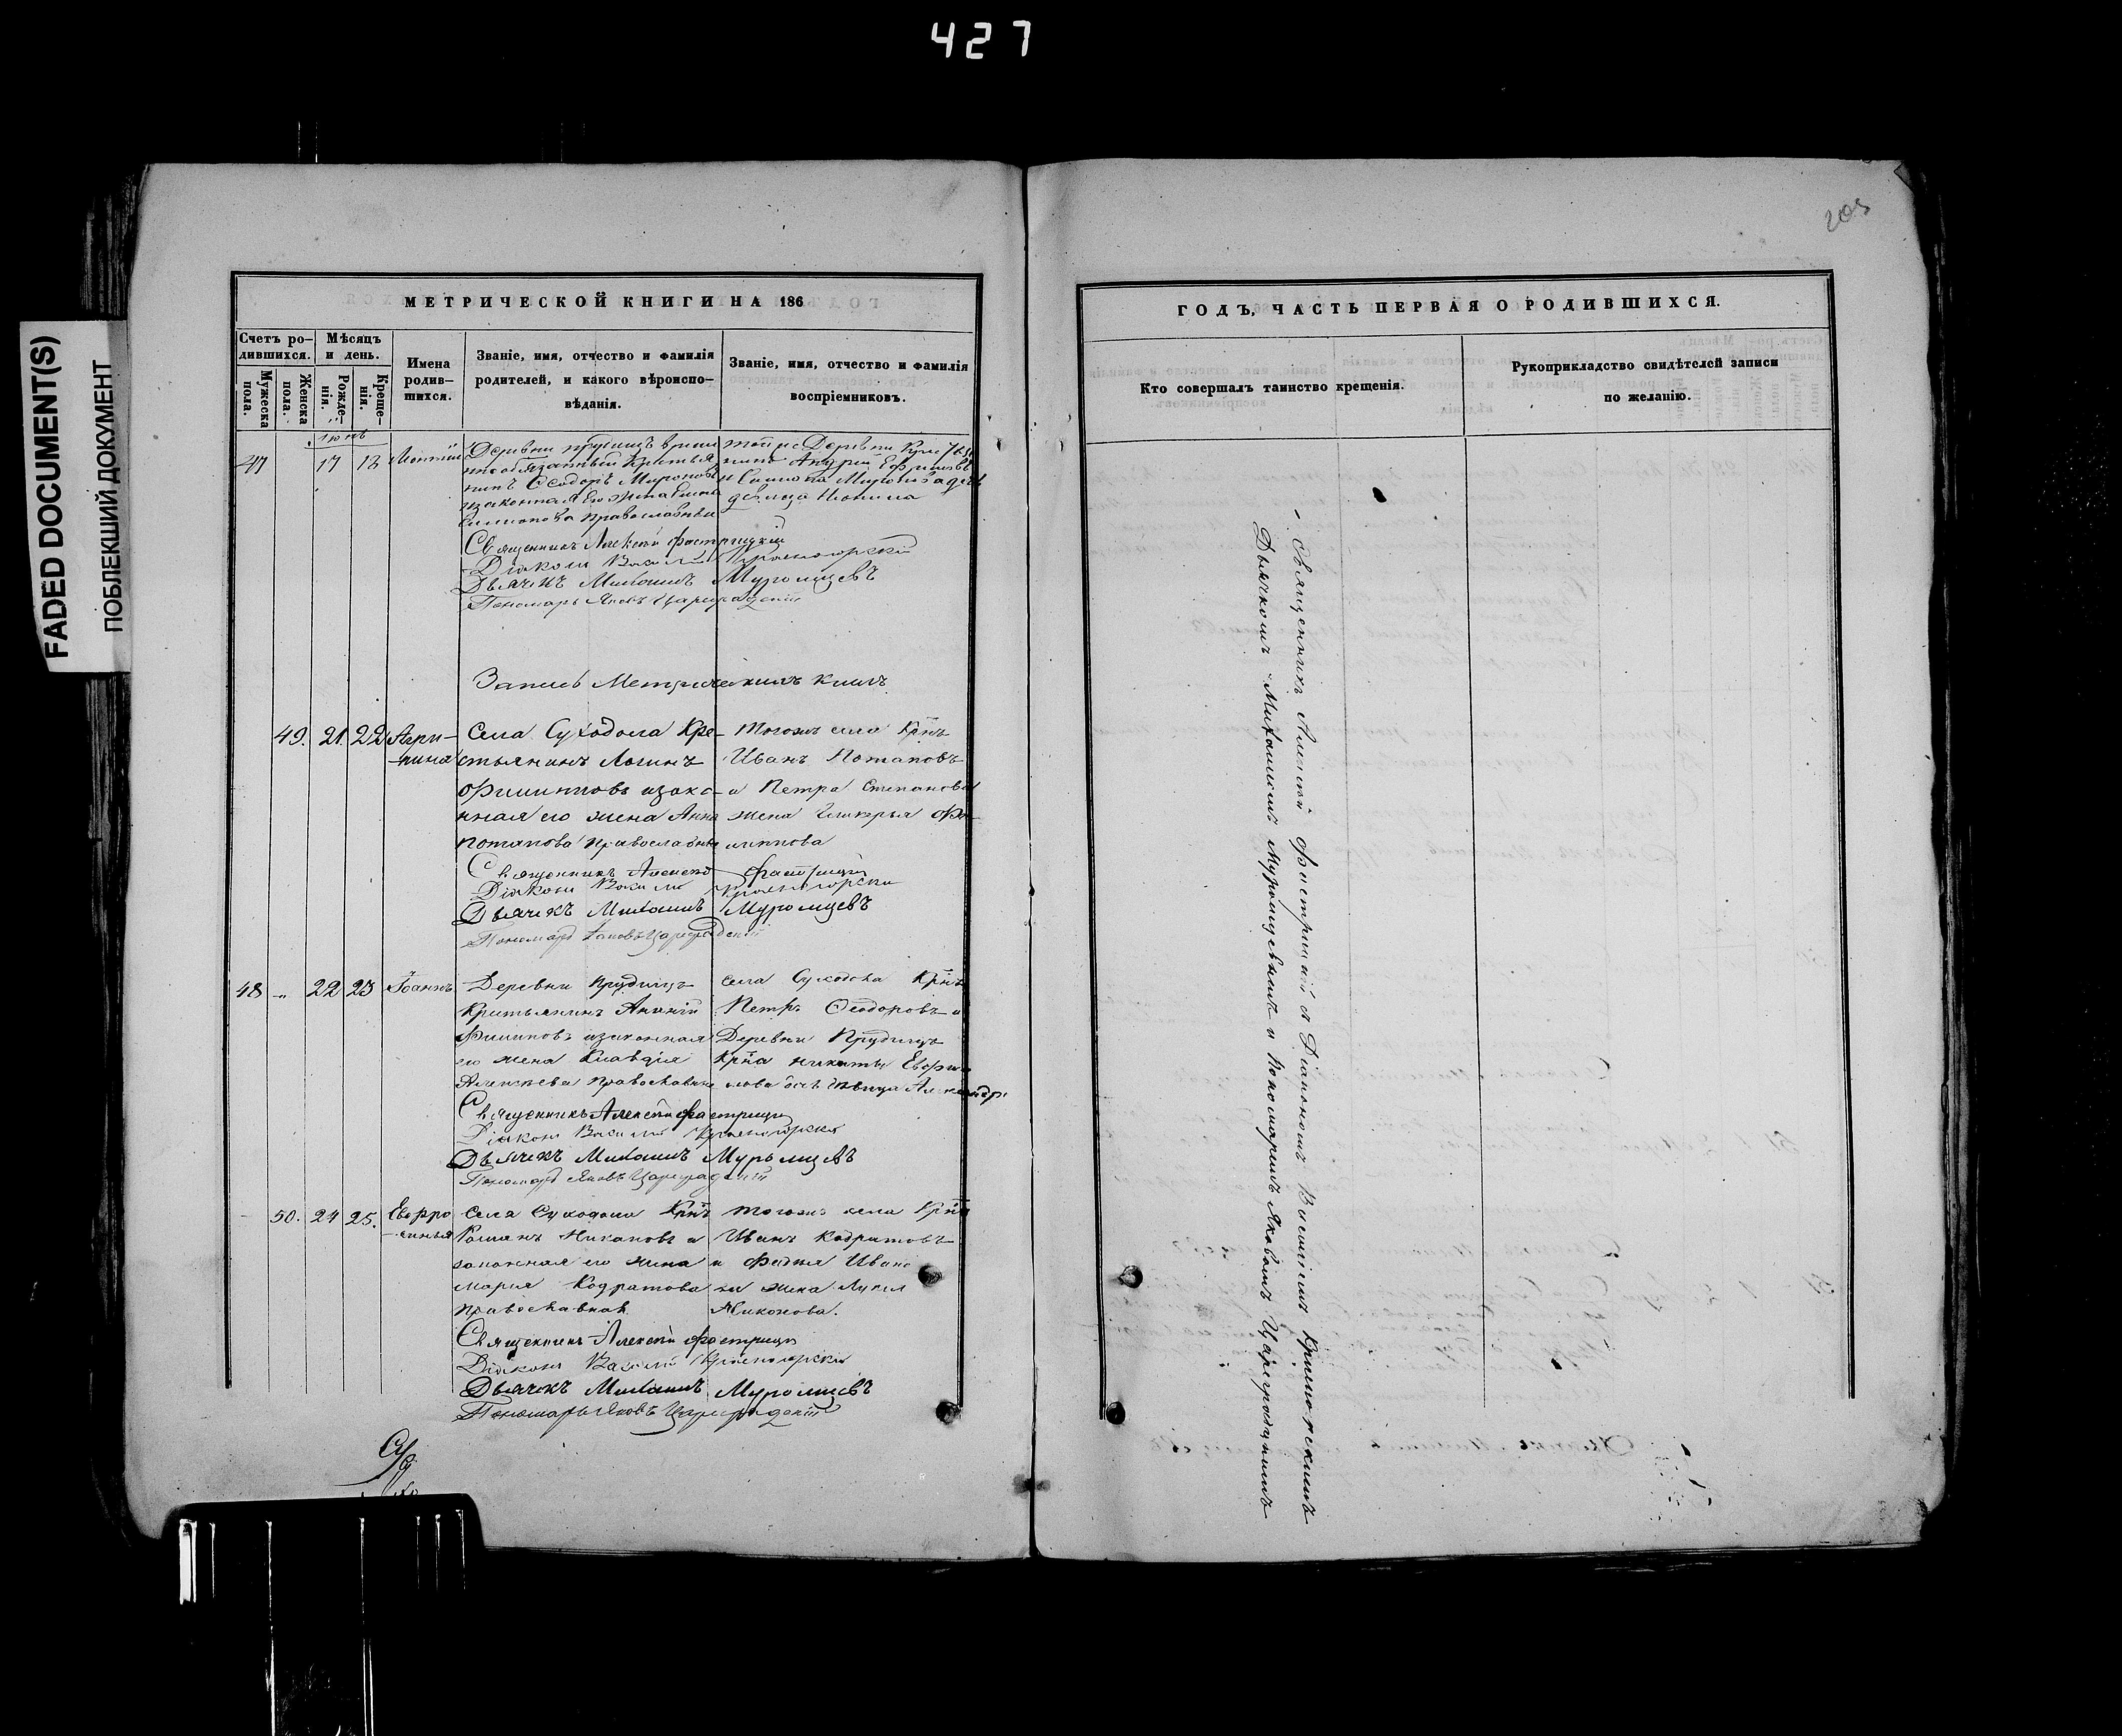 427
FADED DOCUMENT(S)
ПОБЛЕКШИЙ ДОКУМЕНТ
МЕТРИЧЕСКОЙ КНИГИ НА 186
Счетъ ро-
дившихся.
Мѣсяцъ
и день.
Мужеска
пола.
Женска
пола.
Рожде-
нія.
Креще-
нія.
Имена
родив-
шихся.
Званіе, имя, отчество и фамилія
родителей, и какого вѣроиспо-
вѣданія.
Званіе, имя, отчество и фамилія
воспріемниковъ.
47 17 18
Деревни
Крестья
нинъ Ѳеодоръ Мироновъ
изаконная Его жена
православныи
тойже Деревни
Андрей Ефимовъ
и Мироновадочь
дѣвица
Священникъ Алексѣй
Діаконъ Василій Красногорскій
Дьячекъ Михаилъ Муромцевъ
Пономарь Яковъ Цареградскій
Запись Метрическихъ книгъ
49. 21. 22 Агри-
пина
Села Суходола Кре-
стьянинъ Логинъ
Филиповъ изако-
нная его жена Анна
потапова православны
Тогожъ села Крнъ
Иванъ Потаповъ
и Петра Степанова
жена Гликерья Фи-
липпова
Священникъ Алексѣй
Діаконъ Василій Красногорскій
Дьячекъ Михаилъ Муромцевъ
Пономарь Яковъ Цареградскій
48 „ 22 23 Іоаннъ
Деревни Прудищъ
Крестьянинъ Ананій
Филиповъ изаконная
его жена Клавдія
Алексѣева православны
села Суходола Крнъ
Петръ Ѳеодоровъ и
Деревни Прудищъ
Крна никиты Ефи
мова дочь дѣвица Александр
Священникъ Алексѣй
Діаконъ Василій Красногорскій
Дьячекъ Михаилъ Муромцевъ
Пономарь Яковъ Цареградскій
50. 24 25. Евфро
синья
Села Суходола Крнъ
Романъ Никоновъ и
законная его жена
мария Кодратова
православная
тогожъ села Крнъ
Иванъ Кодратовъ
и Фадея Ивано
ва жена
Никонова.
Священникъ Алексѣй
Діаконъ Василій Красногорскій
Дьячекъ Михаилъ Муромцевъ
Пономарь Яковъ Цареградскій
205
ГОДЪ, ЧАСТЬ ПЕРВАЯ О РОДИВШИХСЯ.
Кто совершалъ таинство крещенія.
Рукоприкладство свидѣтелей записи
по желанію.
Священникъ Алексѣй съ Діакономъ Василіемъ
Дьячкомъ Михаиломъ Муромцевымъ и Пономаремъ Яковомъ Цареградскимъ